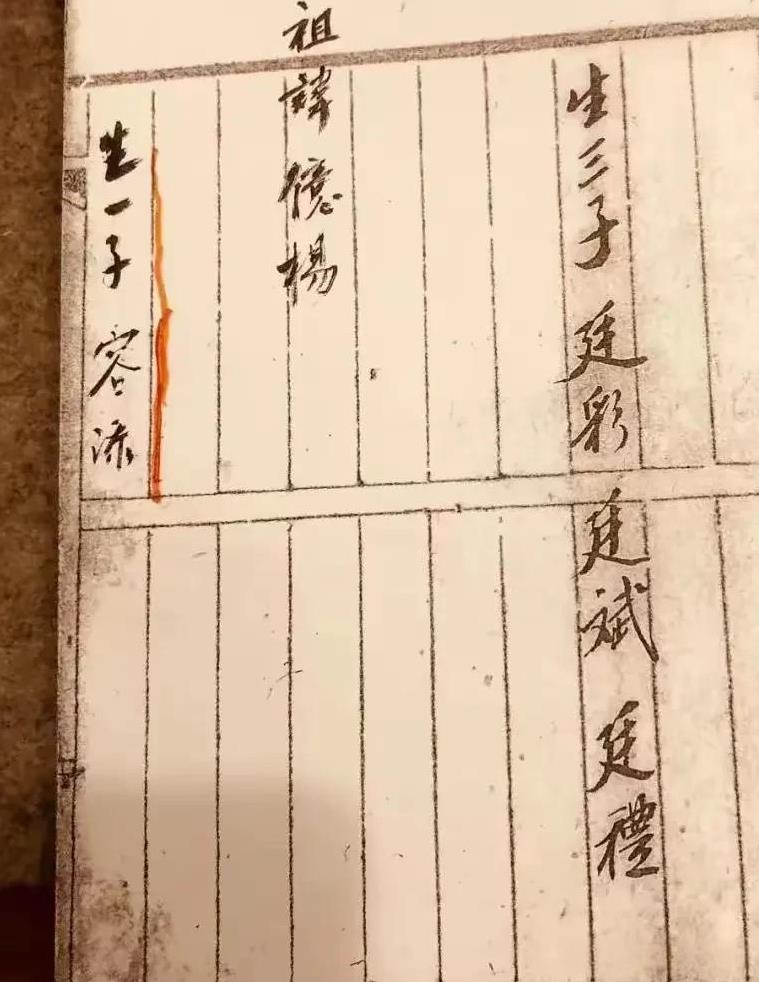 生三子 廷彩 廷斌 廷禮
祖諱億楊
生一子 容添